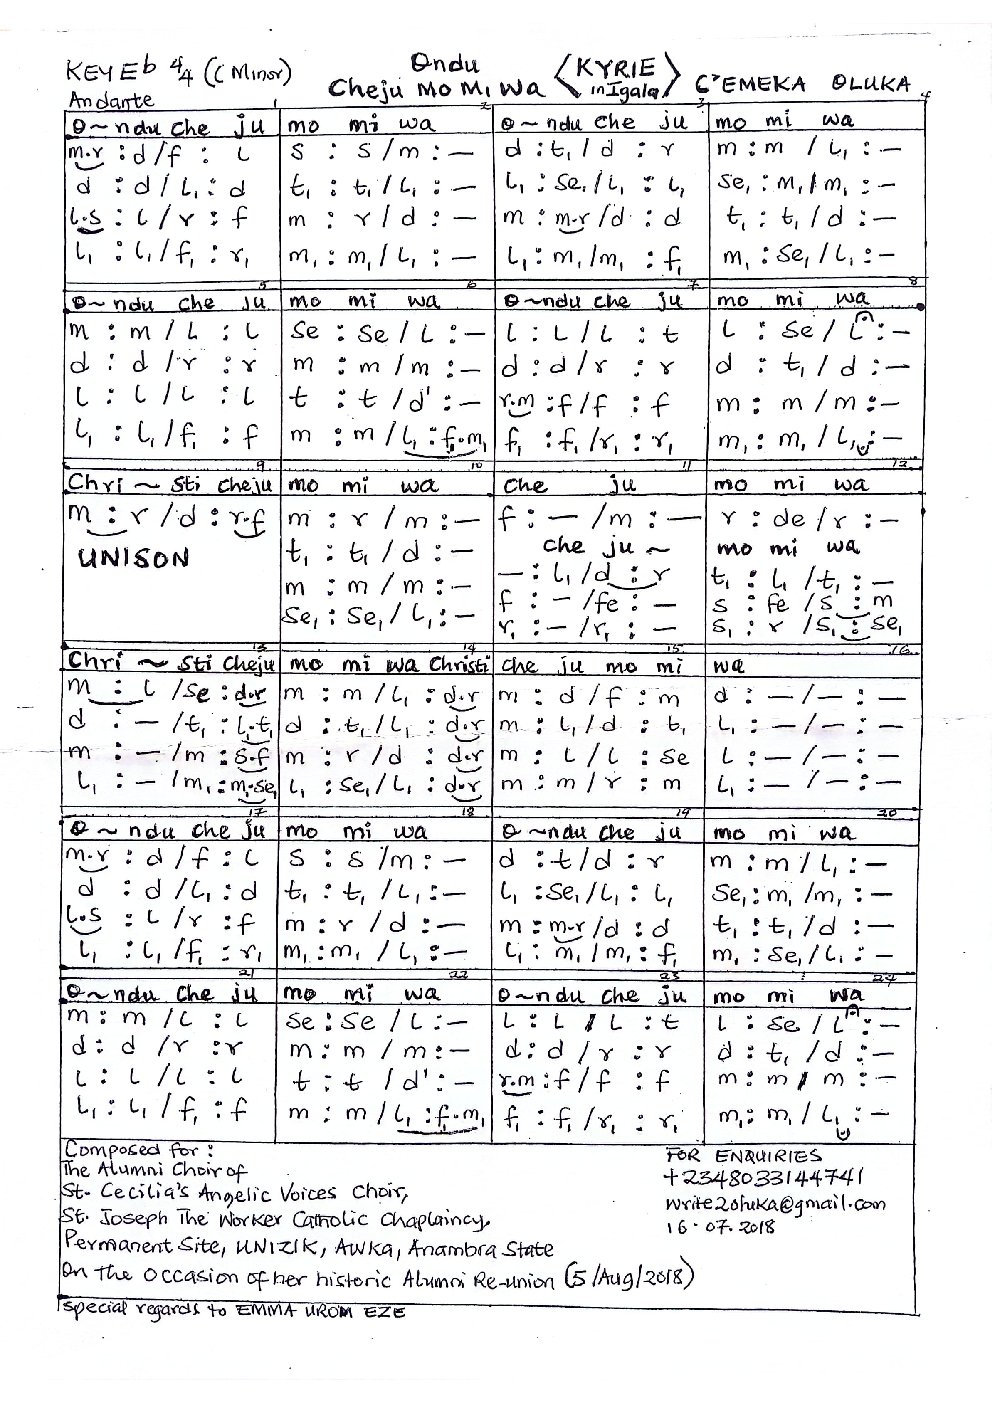 KEY Eb 4/4 (C Minor)
Ondu
Cheju Mo Mi Wa
〈KYRIE in Igala〉
C'EMEKA OLUKA
Andante
1 2 3 4
Ɵ~ndu che ju | mo mi wa | Ɵ~ndu che ju | mo mi wa
m.r : d / f : l | s : s / m : — | d : t₁ / d : r | m : m / l₁ : —
d : d / l₁ : d | t₁ : t₁ / l₁ : — | l₁ : se₁ / l₁ : l₁ | se₁ : m₁ / m₁ : —
l.s : l / r : f | m : r / d : — | m : m.r / d : d | t₁ : t₁ / d : —
l₁ : l₁ / f₁ : r₁ | m₁ : m₁ / l₁ : — | l₁ : m₁ / m₁ : f₁ | m₁ : se₁ / l₁ : —
5 6 7 8
Ɵ~ndu che ju | mo mi wa | Ɵ~ndu che ju | mo mi wa
m : m / l : l | se : se / l : — | l : l / l : t | l : se / l : —
d : d / r : r | m : m / m : — | d : d / r : r | d : t₁ / d : —
l : l / l : l | t : t / d' : — | r.m : f / f : f | m : m / m : —
l₁ : l₁ / f₁ : f | m : m / l₁ : f₁.m₁ | f₁ : f₁ / r₁ : r₁ | m₁ : m₁ / l₁ : —
9 10 11 12
Chri ~ sti cheju | mo mi wa | che ju | mo mi wa
m : r / d : r.f | m : r / m : — | f : — / m : — | r : de / r : —
UNISON | t₁ : t₁ / d : — | che ju ~ | mo mi wa
m : m / m : — | — : l₁ / d : r | t₁ : l₁ / t₁ : —
se₁ : se₁ / l₁ : — | f : — / fe : — | s : fe / s : m
r₁ : — / r₁ : — | s₁ : r / s₁ : se₁
13 14 15 16
Chri ~ sti cheju | mo mi wa Christi | che ju mo mi | wa
m : l / se : d.r | m : m / l₁ : d.r | m : d / f : m | d : — / — : —
d : — / t₁ : l₁.t₁ | d : t₁ / l₁ : d.r | m : l₁ / d : t₁ | l₁ : — / — : —
m : — / m : s.f | m : r / d : d.r | m : l / l : se | l : — / — : —
l₁ : — / m₁ : m₁.se₁ | l₁ : se₁ / l₁ : d.r | m : m / r : m | l₁ : — / — : —
17 18 19 20
Ɵ ~ ndu che ju | mo mi wa | Ɵ ~ndu che ju | mo mi wa
m.r : d / f : l | s : s / m : — | d : t / d : r | m : m / l₁ : —
d : d / l₁ : d | t₁ : t₁ / l₁ : — | l₁ : se₁ / l₁ : l₁ | se₁ : m₁ / m₁ : —
l.s : l / r : f | m : r / d : — | m : m.r / d : d | t₁ : t₁ / d : —
l₁ : l₁ / f₁ : r₁ | m₁ : m₁ / l₁ : — | l₁ : m₁ / m₁ : f₁ | m₁ : se₁ / l₁ : —
21 22 23 24
Ɵ~ndu che ju | mo mi wa | Ɵ ~ndu che ju | mo mi wa
m : m / l : l | se : se / l : — | l : l / l : t | l : se / l : —
d : d / r : r | m : m / m : — | d : d / r : r | d : t₁ / d : —
l : l / l : l | t : t / d' : — | r.m : f / f : f | m : m / m : —
l₁ : l₁ / f₁ : f | m : m / l₁ : f₁.m₁ | f₁ : f₁ / r₁ : r₁ | m₁ : m₁ / l₁ : —
Composed for :
The Alumni Choir of
St. Cecilia's Angelic Voices Choir,
St. Joseph The Worker Catholic Chaplaincy,
Permanent Site, UNIZIK, AWKA, Anambra State
On the occasion of her historic Alumni Re-union (5/Aug/2018)
FOR ENQUIRIES
+2348033144741
write2oluka@gmail.com
16.07.2018
special regards to EMMA UROM EZE